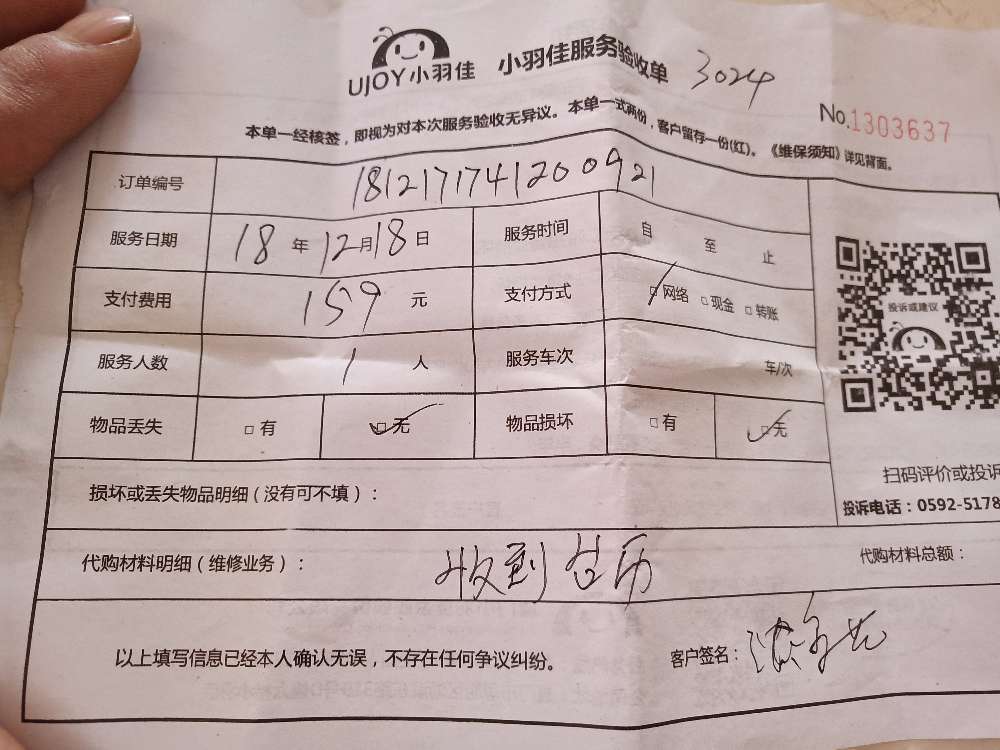 UJOY小羽佳 小羽佳服务验收单 3024
No.1303637
本单一经核签，即视为对本次服务验收无异议。本单一式两份，客户留存一份(红)。《维保须知》详见背面。
订单编号 181217174120092​1
服务日期 18年12月18日 服务时间 自 至 止
支付费用 159元 支付方式 网络 现金 转账
服务人数 1人 服务车次 车/次
物品丢失 有 无 物品损坏 有 无
投诉或建议
扫码评价或投诉
投诉电话：0592-5178
损坏或丢失物品明细（没有可不填）：
代购材料明细（维修业务）： 收到台历 代购材料总额：
以上填写信息已经本人确认无误，不存在任何争议纠纷。 客户签名：